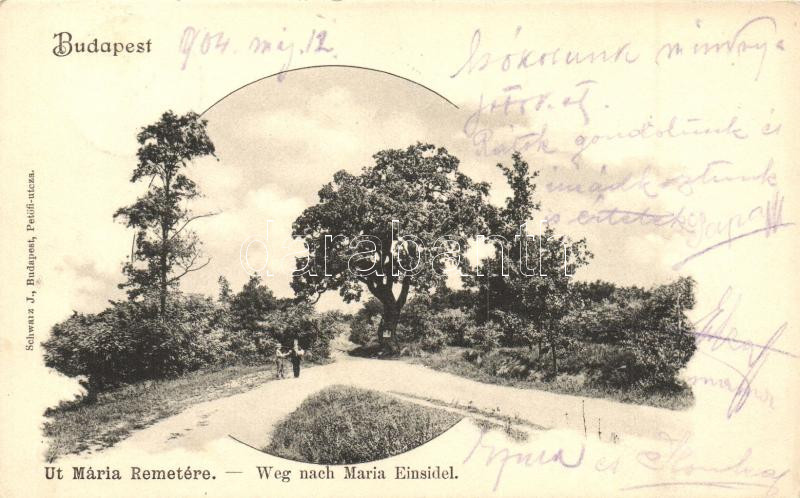 Budapest
1904. máj. 12.
Csókolunk mindnyá
játokat.
Rátok gondolunk és
imádkoztunk
is értetek
Papa
Schwarz J., Budapest, Petőfi-utcza.
darabanth
Ut Mária Remetére. — Weg nach Maria Einsidel.
és